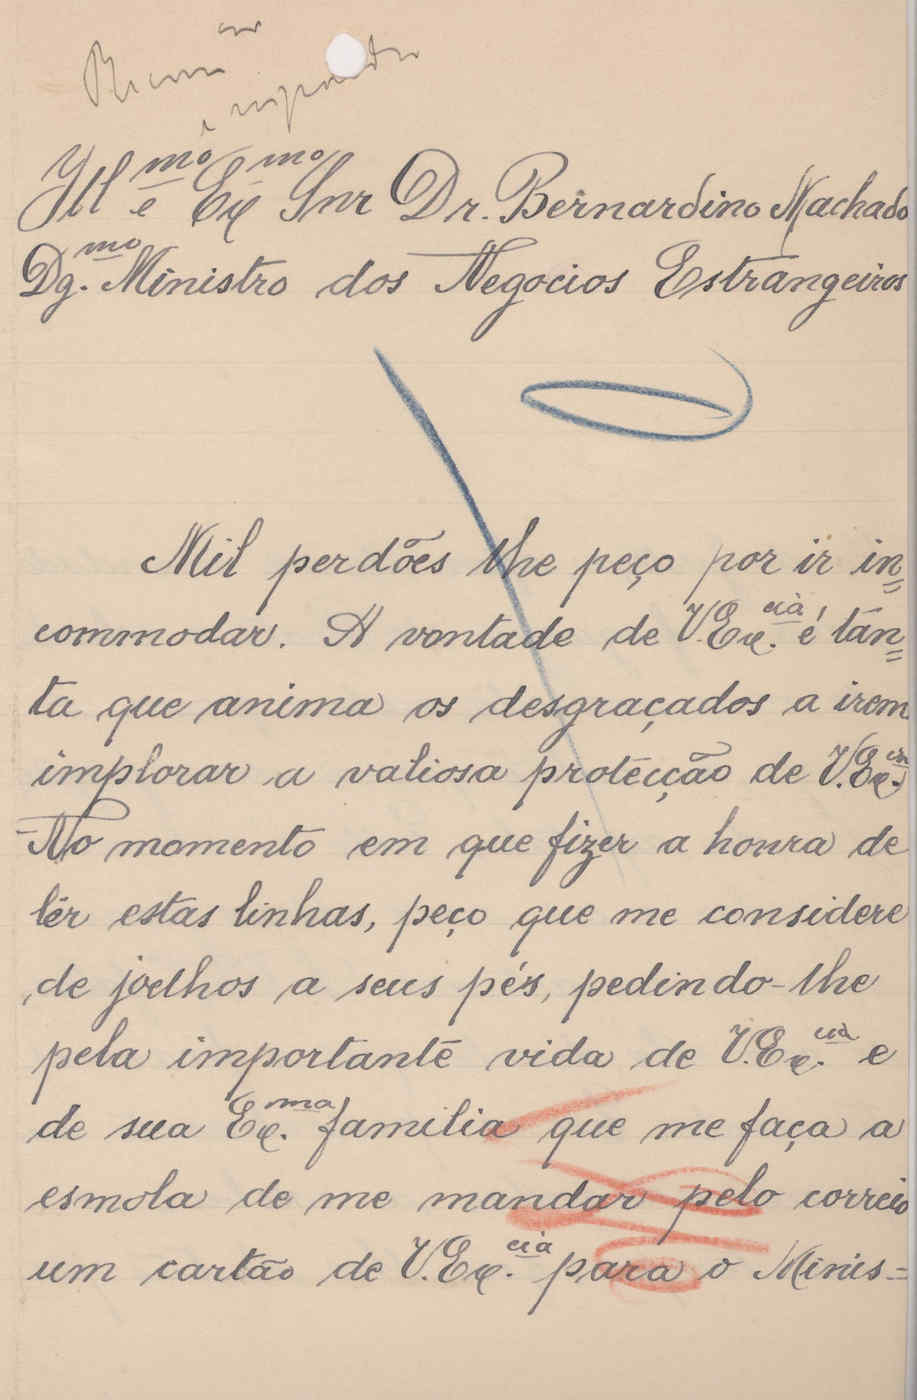 Ill.mo e Ex.mo Snr Dr. Bernardino Machado
Dg.mo Ministro dos Negocios Estrangeiros
Mil perdões lhe peço por ir in=
commodar. A vontade de V. Ex.cia é tán=
ta que anima os desgraçados a irem
implorar a valiosa protecção de V. Ex.cia
No momento em que fizer a honra de
lêr estas linhas, peço que me considere
de joelhos a seus pés, pedindo-lhe
pela importante vida de V. Ex.cia e
de sua Ex.ma familia que me faça a
esmola de me mandar pelo correio
um cartão de V. Ex.cia para o Minis=